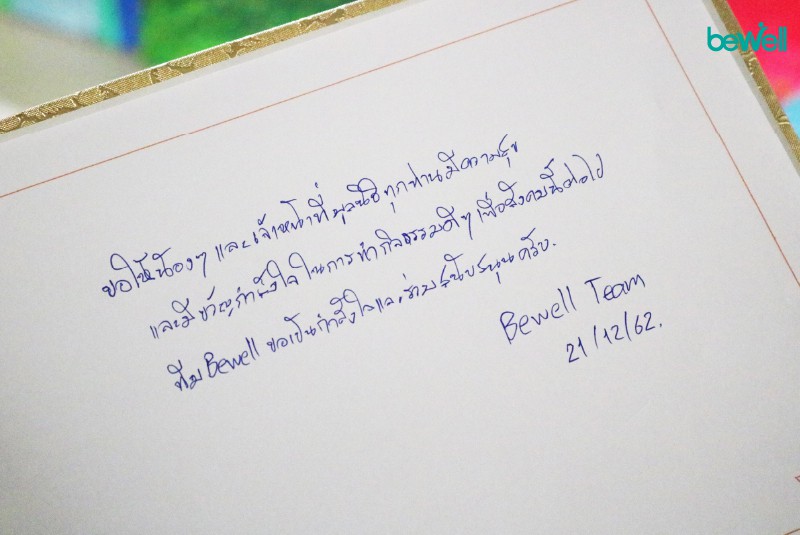 bewell
ขอให้น้องๆ และเจ้าหน้าที่มูลนิธิทุกท่านมีความสุข
และมีขวัญกำลังใจในการทำกิจกรรมดีๆ เพื่อสังคมนี้ต่อไป
ทีม Bewell ขอเป็นกำลังใจและร่วมสนับสนุนครับ.
Bewell Team
21/12/62.